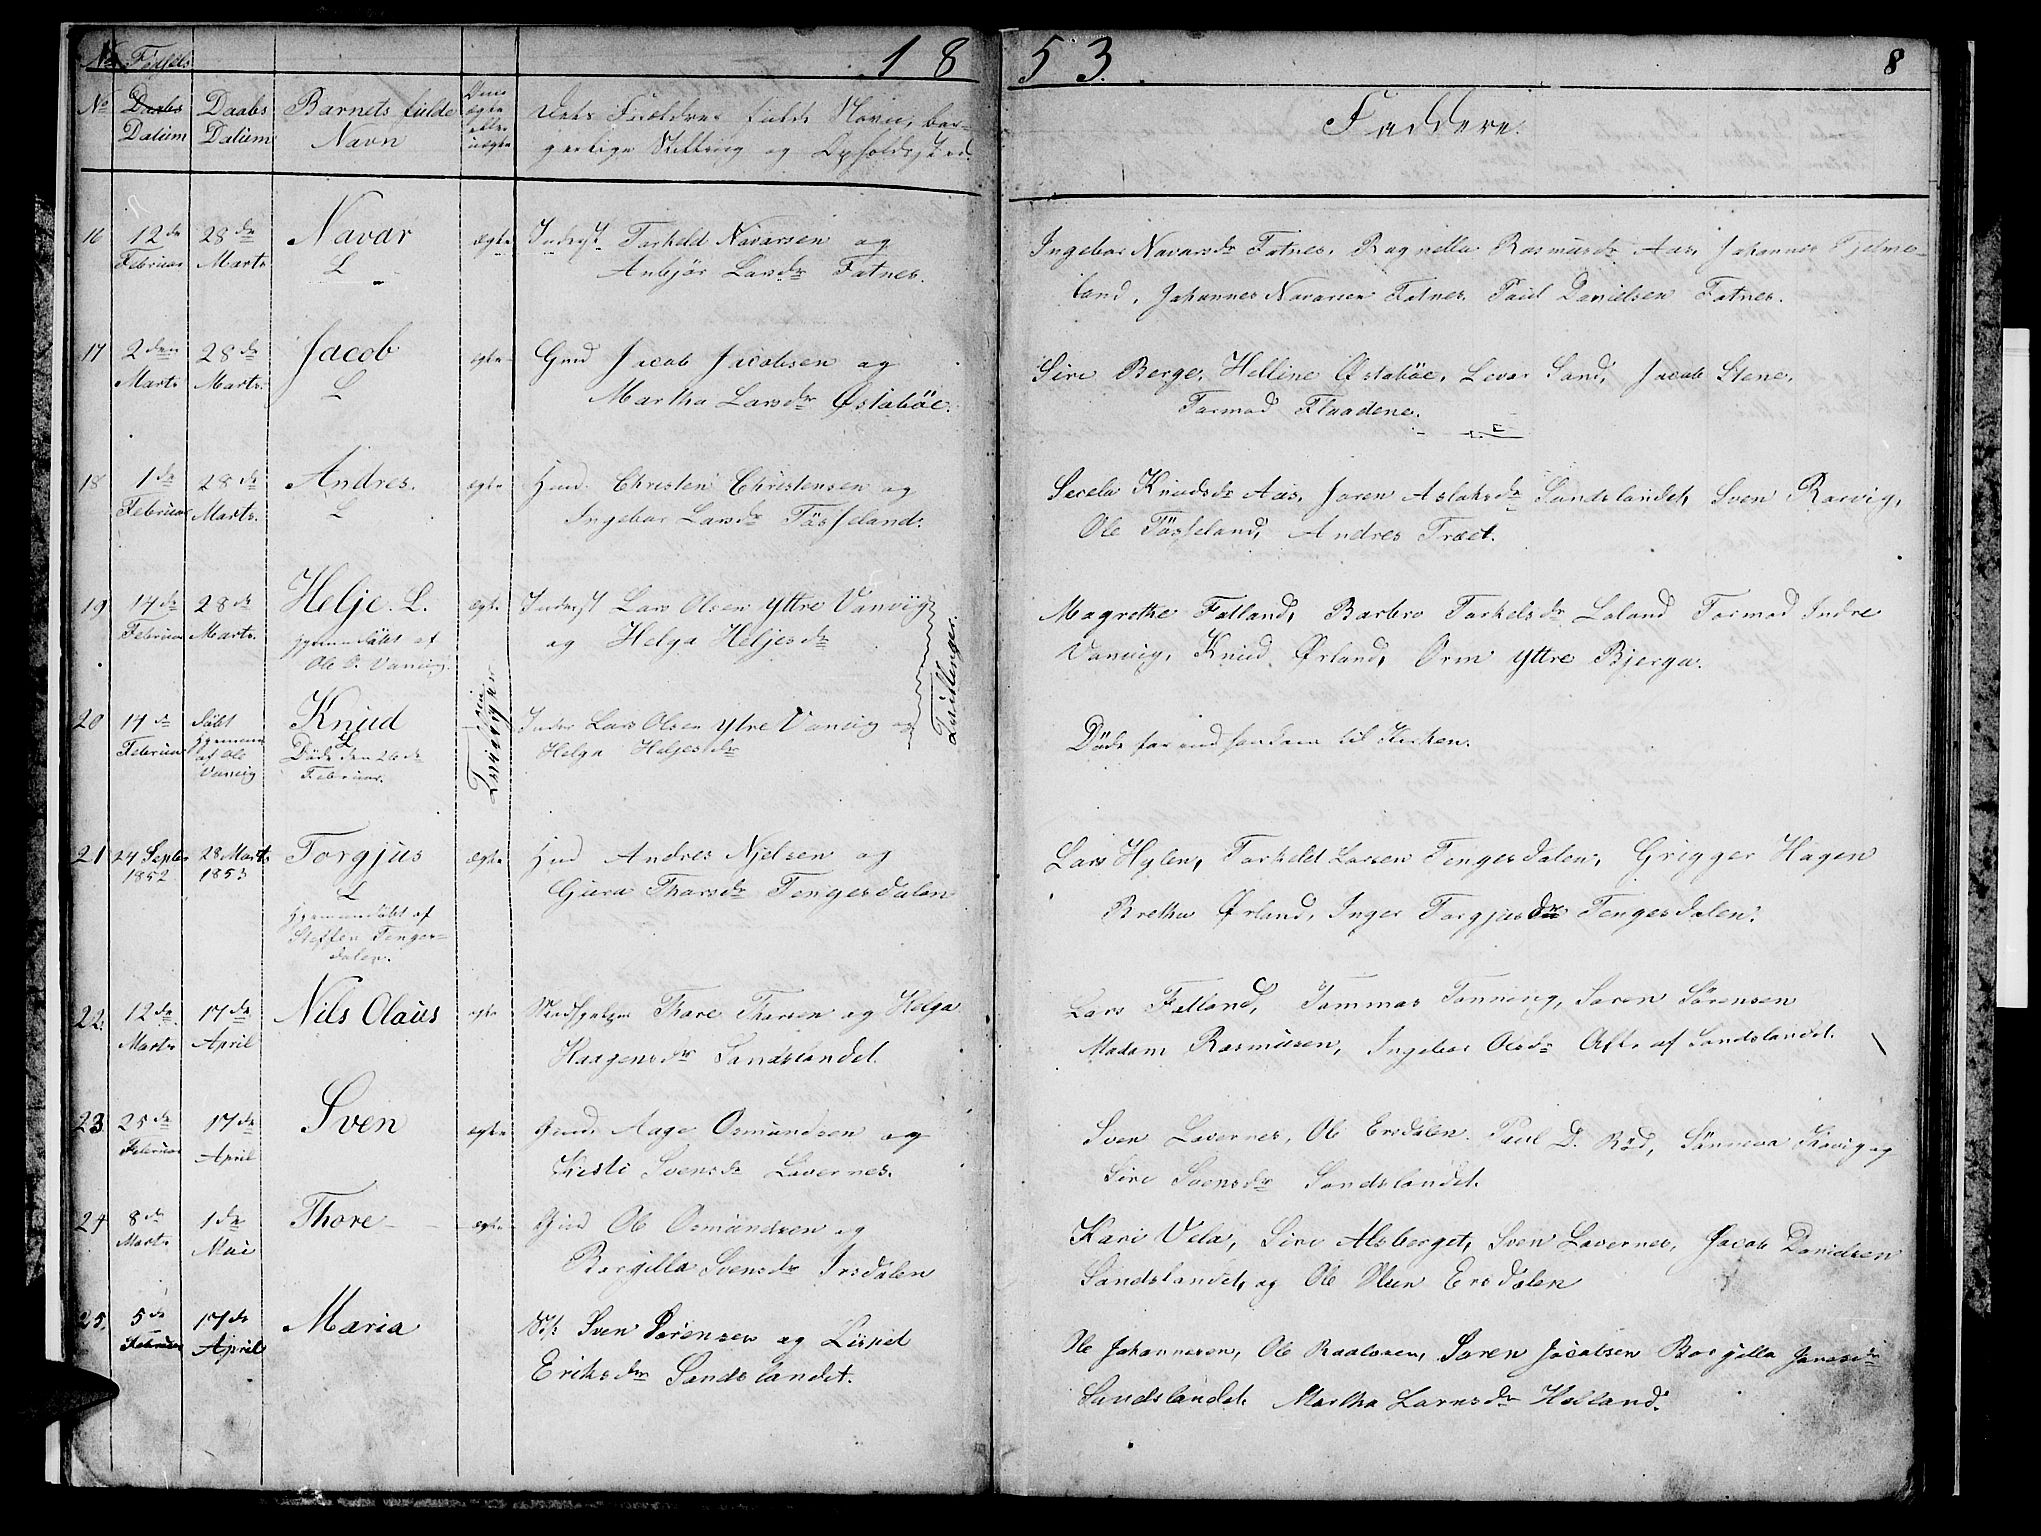 1853.
8
No Fødsels
No Daabs Datum
Daabs Datum
Barnets fulde Navn
Om ægte eller uægte
Dets Forældres fulde Navn, bor-
gerlige Stilling og Opholdssted.
Faddere.
16 12te Februar 28de Marts Navar L ægte Inderst Torkeld Navarsen og
Anbjør Larsdr Fatnes.
Ingebor Navarsdr Fatnes, Ragnella Rasmusdr Aas, Johannes Fjelme-
land, Johannes Navarsen Fatnes Paul Danielsen Fatnes.
17 2den Marts 28de Marts Jacob L ægte Gmd Jacob Jacobsen og
Martha Larsdr Østabøe.
Siri Berge, Helline Østabøe, Levar Sand, Jacob Stene,
Tormod Flaadene.
18 1de Februar 28de Marts. Andres. L ægte Hmd. Christen Christensen og
Ingebor Larsdr Tøsseland.
Secela Knudsdr Aas, Joren Aslaksdr Sandslandet, Sven Rarvig,
Ole Tøsseland, Andres Træet.
19 14de Februar 28de Marts. Helje. L. ægte Inderst Lars Olsen Yttre Vanvig
hjemmedøbt af
Ole O. Vanvig.
og Helga Heljesdr
Tvillinger.
Magrethe Fatland, Barbro Torkelsdr Loland Tormod Indre
Vanvig, Knud Ørland, Orm Yttre Bjerga.
20 14de Februar døbt hjemme af Ole Vanvig
Knud L
Døde den 26de
Februar.
Tvillinger
Inder Lars Olsen Ytre Vanvig og
Helga Heljesdr
Døde for end han kom til Kirken.
21 24 Septbr 1852 28 Marts 1853 Torgjus L ægte Hmd Andres Njelsen og
Gjura Tharsdr Tengesdalen
hjemmedøbt af
Steffen Tenges-
dalen.
Lars Hylen, Torkeld Larsen Tengesdalen, Grigger Hagen
Bretha Ørland, Inger Torgjusdr Tengesdalen.
22. 12de Marts 17de April Nils Olaus ægte Thore Thorsen og Helga
Haagensdr Sandslandet.
Lars Fatland, Tommas Tonning, Soren Sørensen
Madam Rasmusen, Ingebor Olsdr Alle af Sandslandet.
23 25de Februar 17de April Sven ægte Gmd Aage Osmundsen og
Kristi Svensdr Lovernes.
Sven Lovernes, Ole Ersdalen. Paul D. Rød, Sønneva og
Siri Svensdr Sandslandet.
24 8de Marts 1de Mai Thore ægte Gmd Ole Osmundsen og
Borgilla Svensdr Irsdalen
Kari Vela, Siri Alsberget, Sven Lovernes, Jacob Davidsen
Sandslandet, og Ole Olsen Ersdalen
25. 5de Februar 17de April Maria Sven Sørensen og Lispet
Eriksdr Sandslandet.
Ole Johannesen, Ole Soren Jacobsen Borgilla Jonasdr
Sandslandet. Martha Larsdr Hetland.